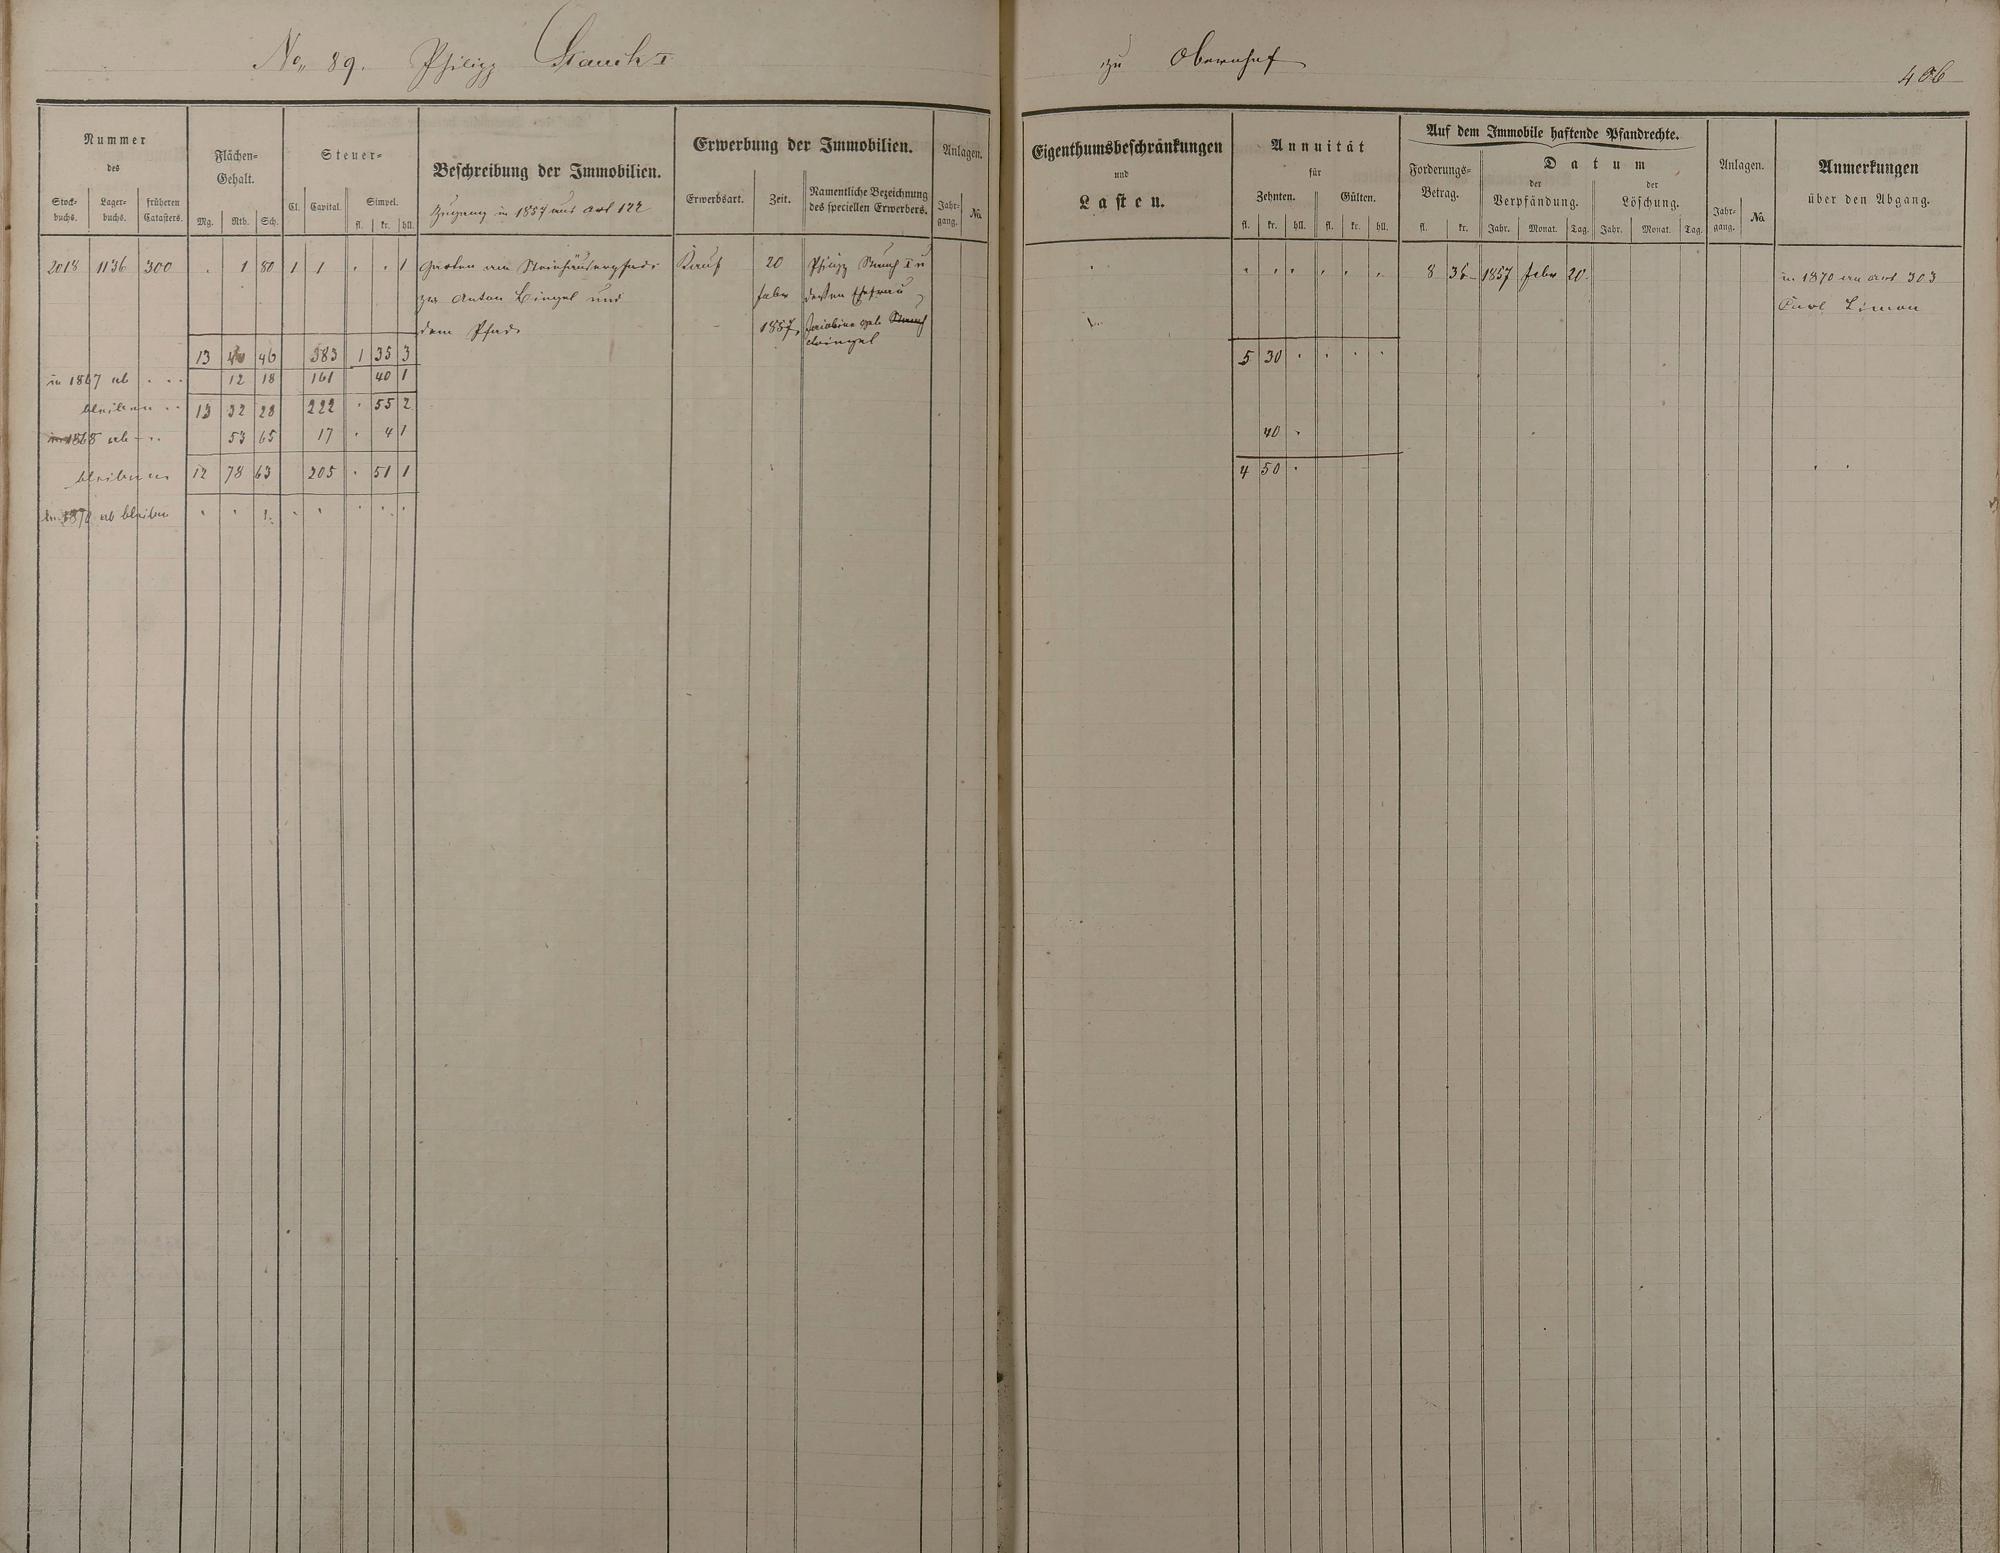 No. 89. Philipp Stauch I
zu Obernhof
406
Nummer
des
Stock-buchs. Lager-buchs. früheren Catasters.
Flächen-Gehalt.
Mg. Rth. Sch.
Steuer-
Cl. Capital. Simpel.
fl. kr. hll.
Beschreibung der Immobilien.
Zugang in 1857 aus Art 122
Erwerbung der Immobilien.
Erwerbsart. Zeit. Namentliche Bezeichnung des speciellen Erwerbers.
Anlagen.
Jahr-gang. No.
Eigenthumsbeschränkungen
und
Lasten.
Annuität
für
Zehnten. Gülten.
fl. kr. hll. fl. kr. hll.
Auf dem Immobile haftende Pfandrechte.
Forderungs-Betrag.
fl. kr.
Datum
der Verpfändung. der Löschung.
Jahr. Monat. Tag. Jahr. Monat. Tag.
Anlagen.
Jahr-gang. No.
Anmerkungen
über den Abgang.
2018 1136 300 . 1 80 1 1 . . 1 Garten am Steinhäuserpfade Kauf 20 Philipp Stauch I u
zw Anton Bingel und Febr dessen Ehefrau
dem Pfade 1857, Jacobine geb Stauch
Bingel
" " " " " " 8 36 1857 Febr 20.
in 1870 an Art 303
Carl Simon
13 46 383 1 35 3 5 30 . . . .
in 1867 ab . . . 12 18 161 40 1
bleiben . . 13 32 28 222 . 55 2
in 1868 ab - . . 53 65 17 . 4 1 40 .
bleiben 12 78 63 205 . 51 1 4 50 .
in 1870 ab bleiben